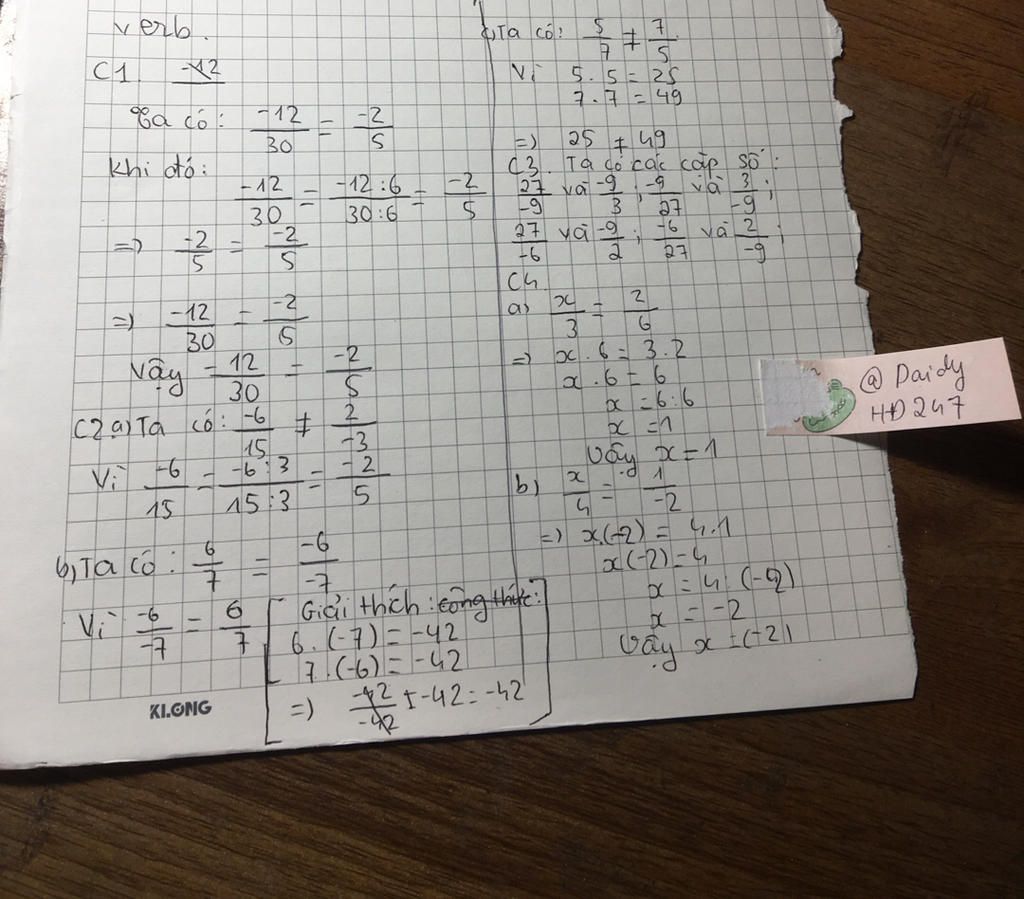 verb.
C1 -12
Ta có: -12/30 = -2/5
Khi đó:
-12/30 = -12:6/30:6 = -2/5
=> -2/5 = -2/5
=> -12/30 = -2/5
Vậy -12/30 = -2/5
C2 a) Ta có: -6/15 ≠ 2/-3
Vì -6/15 = -6:3/15:3 = -2/5
b, Ta có: 6/7 = -6/-7
Vì -6/-7 = 6/7
Giải thích: công thức:
6.(-7) = -42
7.(-6) = -42
=> -42/-42 I -42 = -42
KLONG
c, Ta có: 5/7 ≠ 7/5.
Vì 5.5 = 25
7.7 = 49
=> 25 ≠ 49
C3. Ta có các cặp số:
27/-9 và -9/3; -9/27 và 3/-9;
27/-6 và -9/2; -6/27 và 2/-9;
C4.
a) x/3 = 2/6
=> x.6 = 3.2
x.6 = 6
x = 6:6
x = 1
Vậy x = 1
b) x/4 = 1/-2
=> x.(-2) = 4.1
x(-2) = 4
x = 4:(-2)
x = -2
Vậy x = (-2)
@Daidy
HD247